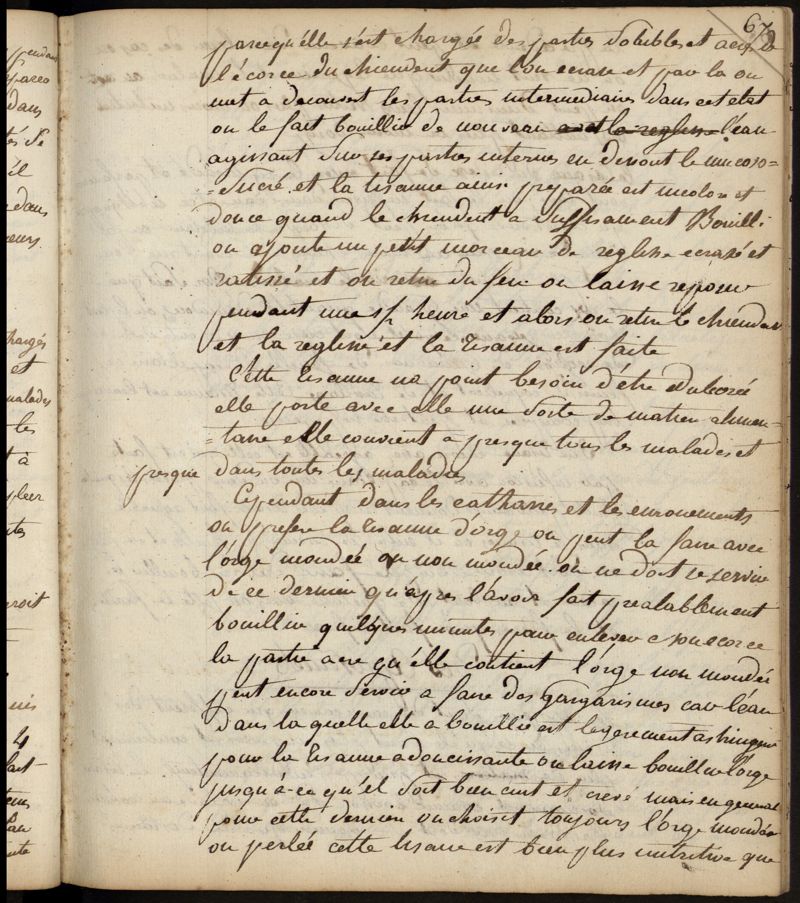 67
parcequ'elle s'est chargée des parties solubles et acres de
l'écorce du chiendent que l'on ecrase et par la on
met à decouvert les parties intermediaires dans cet etat
on le fait bouillir de nouveau avec la reglisse l'eau
agissant sur ses parties internes en dissout le mucoso=
=sucré et la tisanne ainsi preparée est incolore et
douce quand le chiendent a suffisament Bouilli
on ajoute un petit morceau de reglisse ecrasé et
ratissé et on retire du feu on laisse reposer
pendant une ½ heure et alors on retire le chiendent
et la reglisse et la tisanne est faite
Cette tisanne na point besoin d'être edulcorée
elle porte avec elle une sorte de matiere alimen=
=taire elle convient a presque tous les malades et
presque dans toutes les maladies
Cependant dans les catharres et les enrouements
on prefere la tisanne d'orge on peut la faire avec
l'orge mondée ou non mondée. on ne doit se servir
de ce dernier qu'apres l'avoir fait prealablement
bouillir quelques minutes pour enlever a son ecorce
la partie acre qu'elle contient l'orge non mondée
peut encore servir a faire des gargarismes car l'eau
dans la quelle elle à bouillie est legerement astringente
pour la tisanne adoucissante on laisse bouillir l'orge
jusqu'à-ce qu'el soit bien cuit et crevé mais en general
pour cette derniere on choisit toujours l'orge mondée
ou perlée cette tisanne est bien plus nutritive que